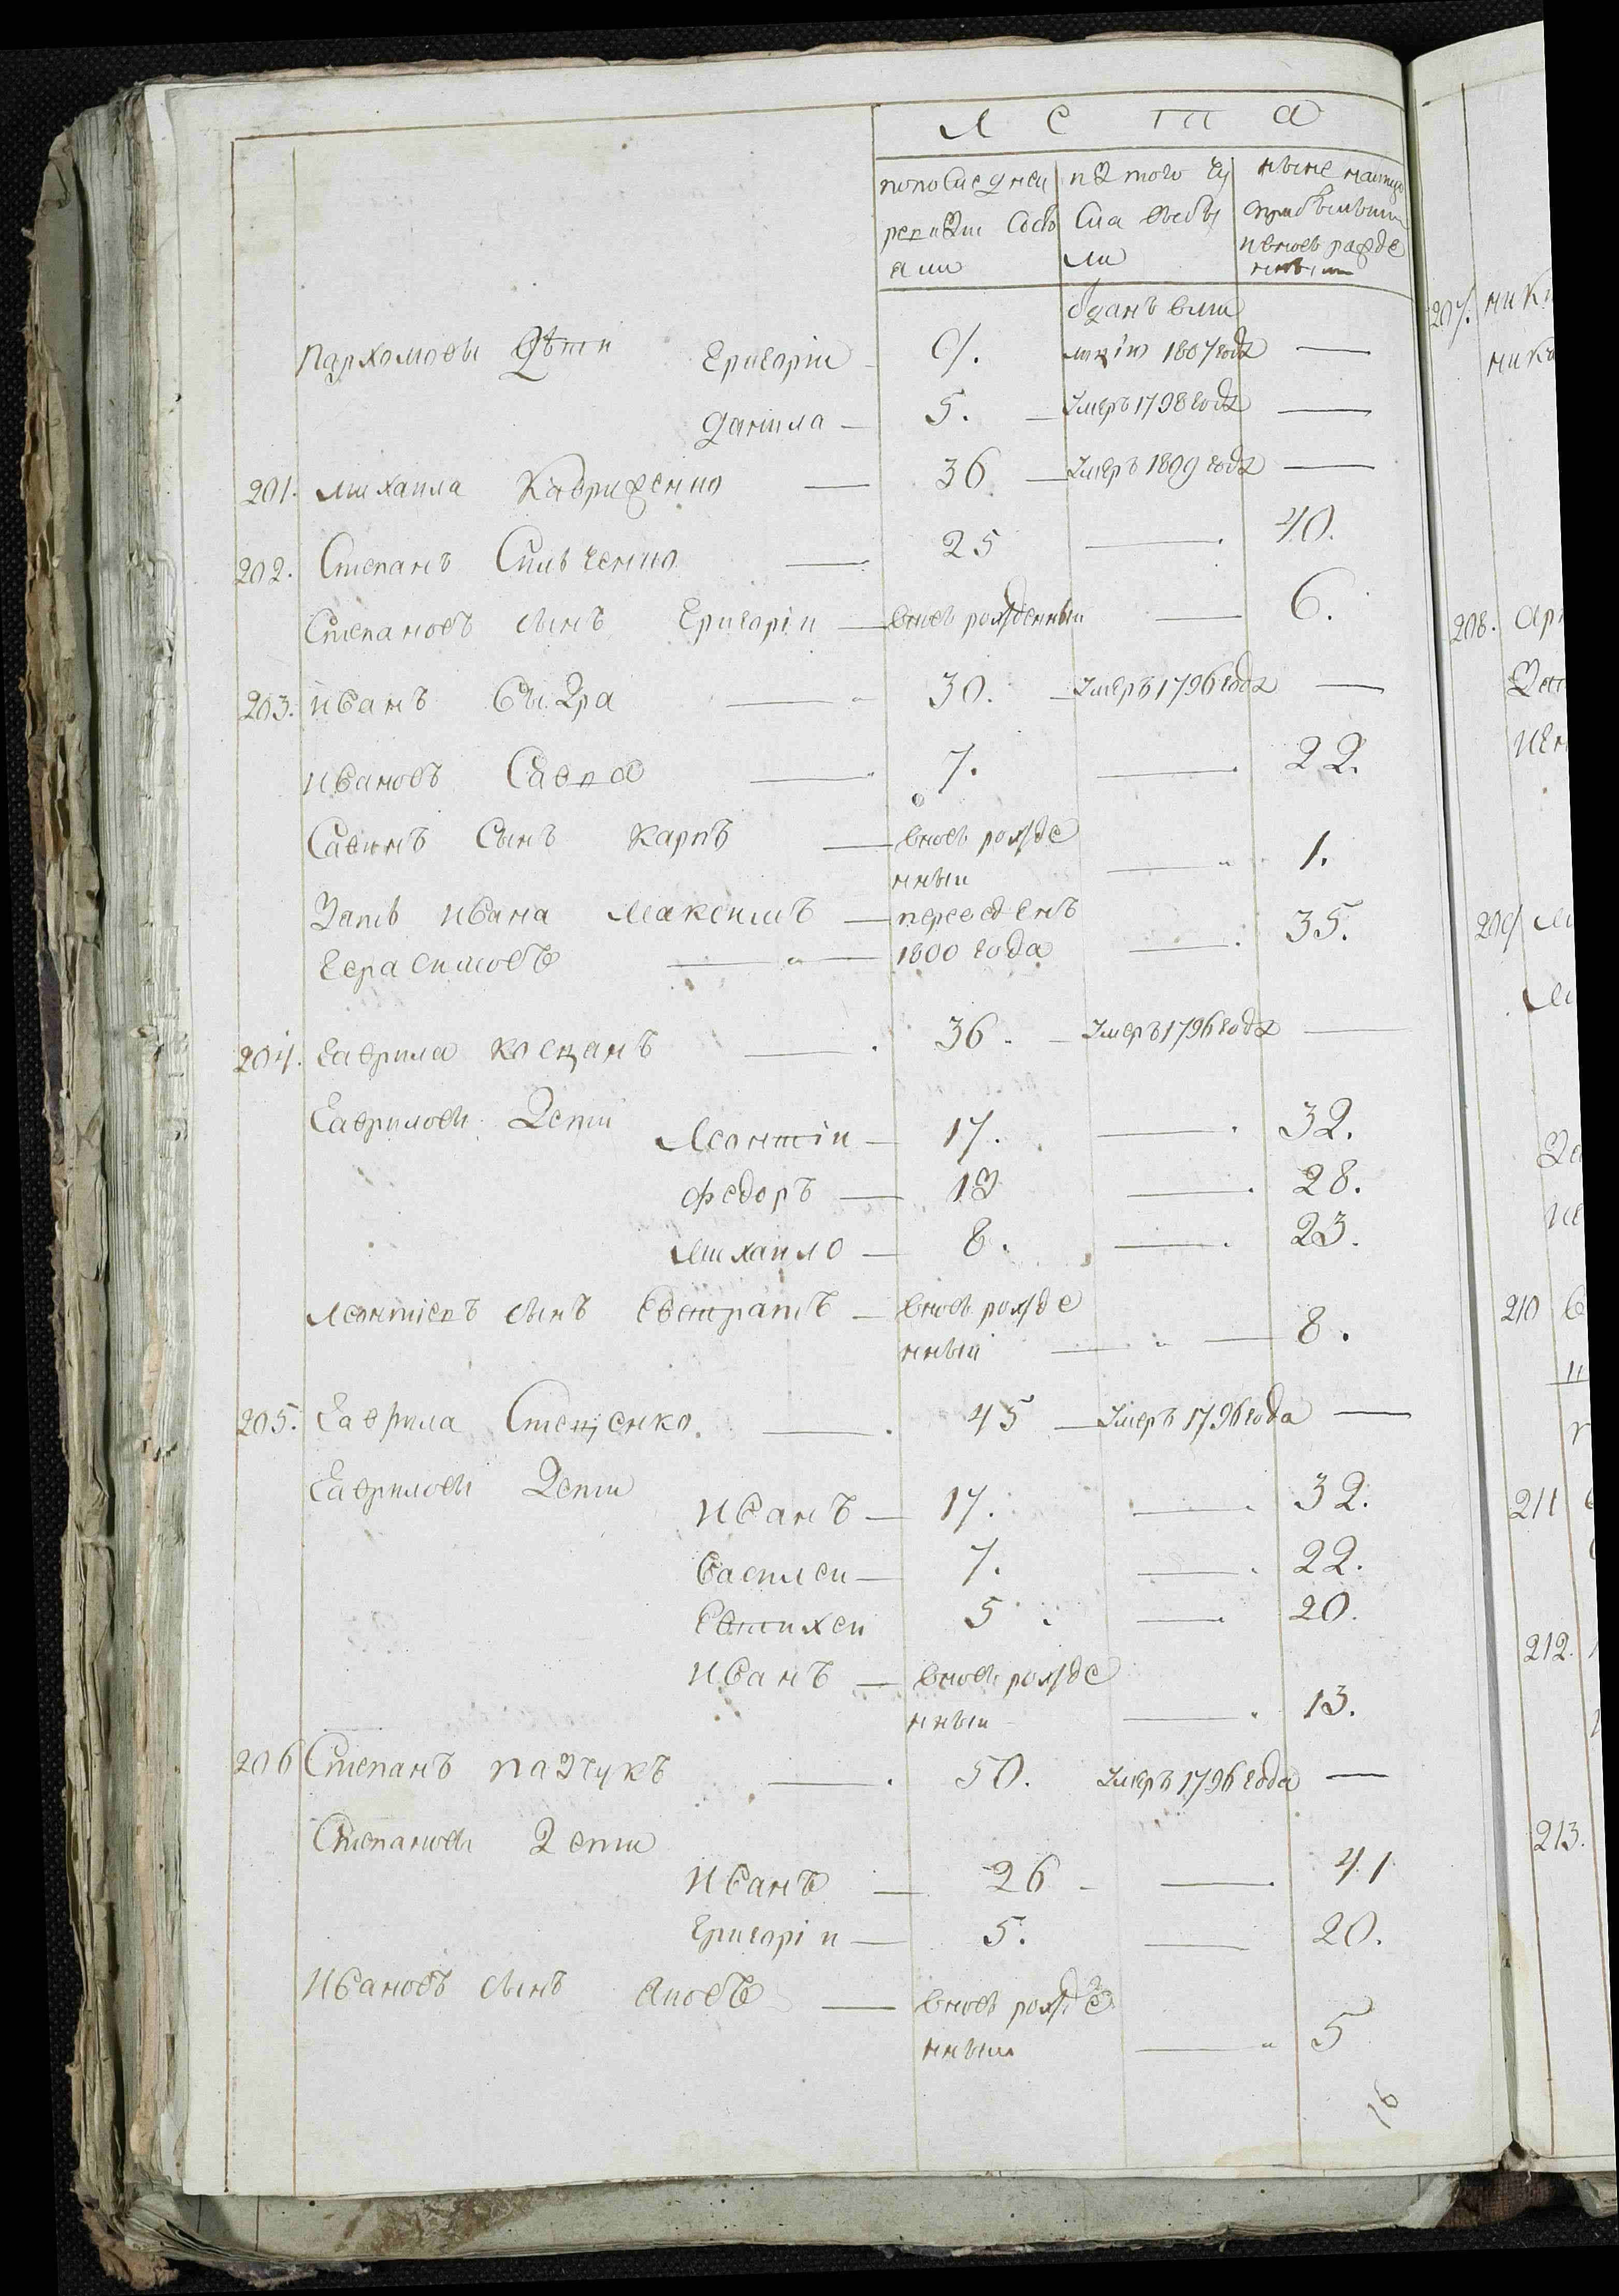 Лета
по последней
ревизии состо
яли
из того чи
сла выбы
ли
ныне налицо
с прибылыми
и вновь рожде
нными
Пархомовы дѣти Григорiй 9. отданъ в ми
лицiю 1807 года —
Данила — 5. — Умеръ 1798 года —
201. Михаила Кавриженко — 36 — Умеръ 1809 года —
202. Степанъ Сильченко — 25 — 40.
Степановъ сынъ Григорiй — вновь рожденный — 6.
203. Иванъ Бызра — 30. — Умеръ 1796 года —
Ивановъ Савва — 7. — 22.
Савинъ сынъ Карпъ — вновь рожде
нный — 1.
Зять Ивана Максимъ — переведенъ
Герасимовъ — 1800 года — 35.
204. Гаврила Косцанъ — 36. — Умеръ 1796 года —
Гавриловы Дети Леонтiй — 17. — 32.
Федоръ — 13 — 28.
Михайло — 8. — 23.
Леонтiевъ сынъ Евстратъ — вновь рожде
нный — 8.
205. Гаврила Стеценко. — 45 — Умеръ 1796 года —
Гавриловы Дети Иванъ — 17. — 32.
Василей — 7. — 22.
Евтихей 5. — 20.
Иванъ — вновь рожде
нный — 13.
206 Степанъ Пазчукъ — 50. Умеръ 1796 года —
Степановы Дети
Иванъ — 26 — 41
Григорiй — 5. — 20.
Ивановъ сынъ Яковъ — вновь рожде
нный — 5
16
207. Ник
Ника
208. Арт
209 Ми
210
211
212.
213.